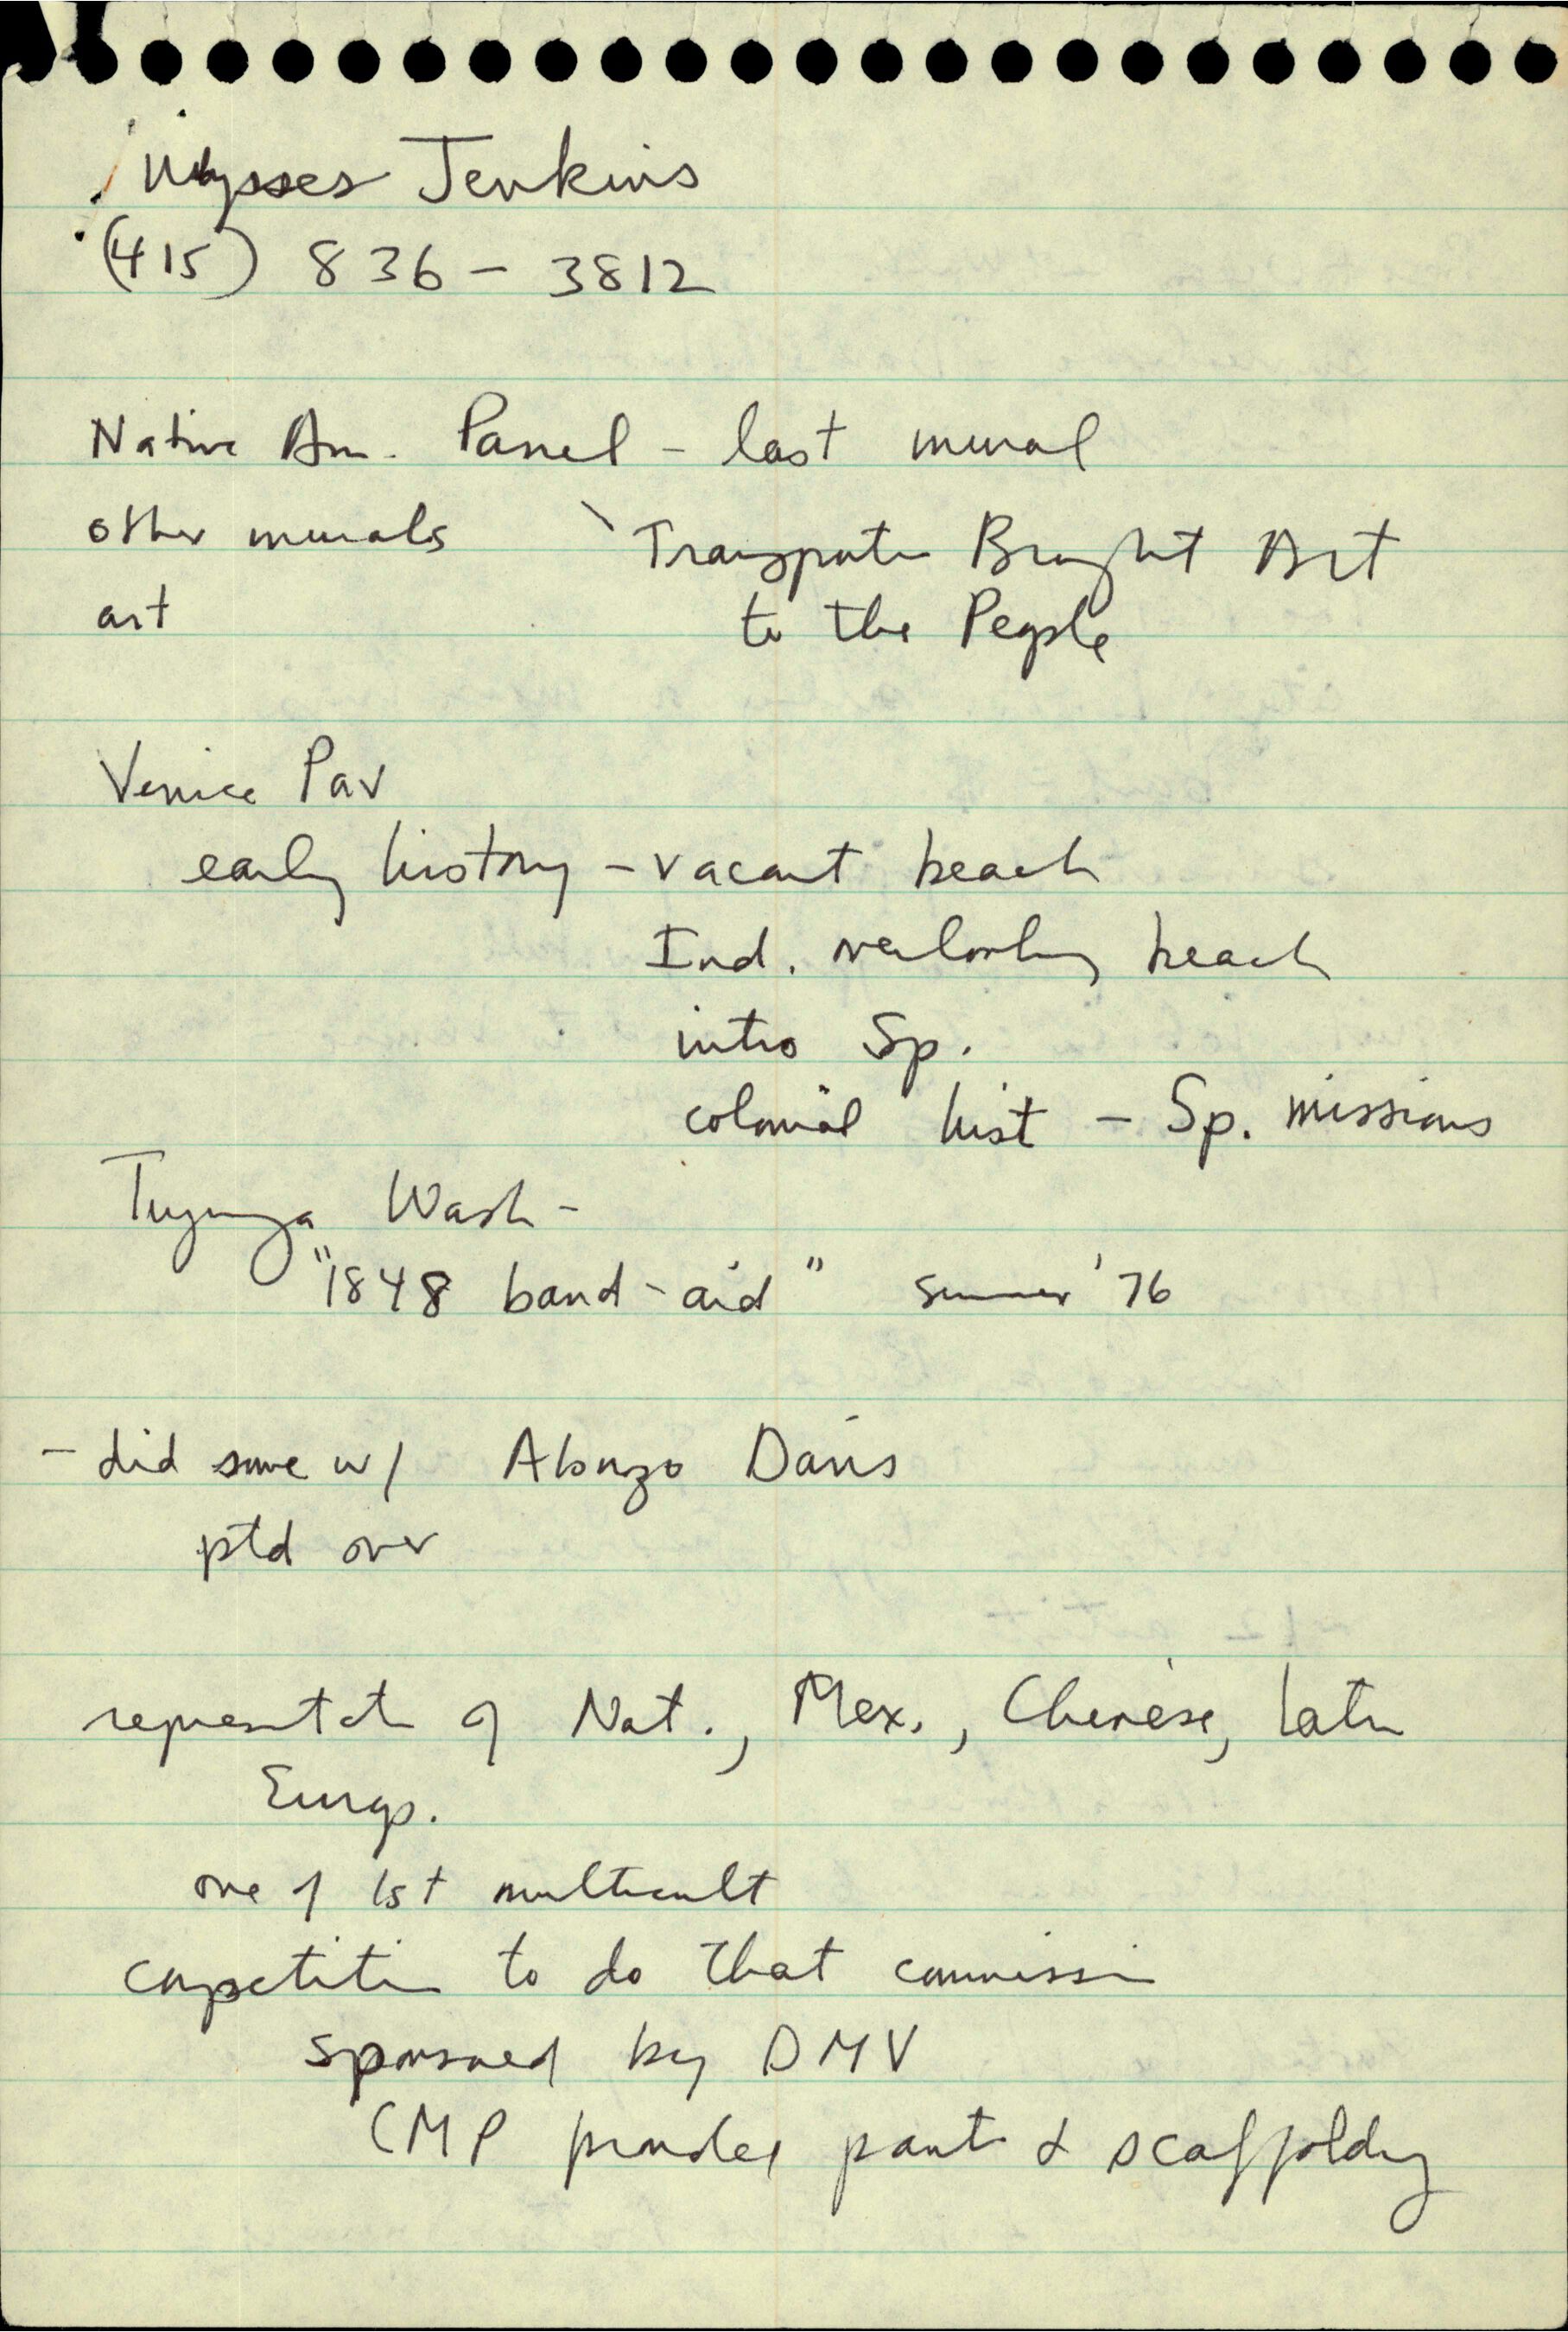 Ulysses Jenkins
(415) 836-3812
Native Am. Panel - last mural
other murals
art
Transportatn Brought Art
to the People
Venice Pav
early history - vacant beach
Ind. overlooking beach
intro Sp.
colonial hist - Sp. missions
Tujunga Wash -
"1848 band-aid" summer '76
- did some w/ Alonzo Davis
ptd over
representatn of Nat., Mex., Chinese, later
Europ.
one of 1st multicult
competition to do that commission
sponsored by DMV
CMP provided paint & scaffolding